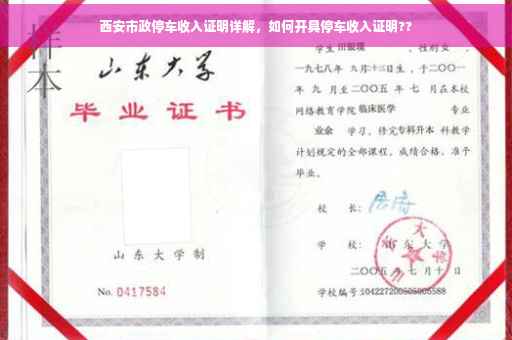 西安市政停车收入证明详解，如何开具停车收入证明??
样本
山东大学
毕业证书
山东大学制
No. 0417584
学生 性别 女，
一九七八年 九月十三日生，于二〇〇一
年 九 月至二〇〇五 年 七 月在本校
网络教育学院 临床医学 专业
业余 学习，修完专科升本 科教学
计划规定的全部课程，成绩合格，准予
毕业。
校 长：
学 校：山东大学
二〇〇五 年 七 月 十 日
学校编号: